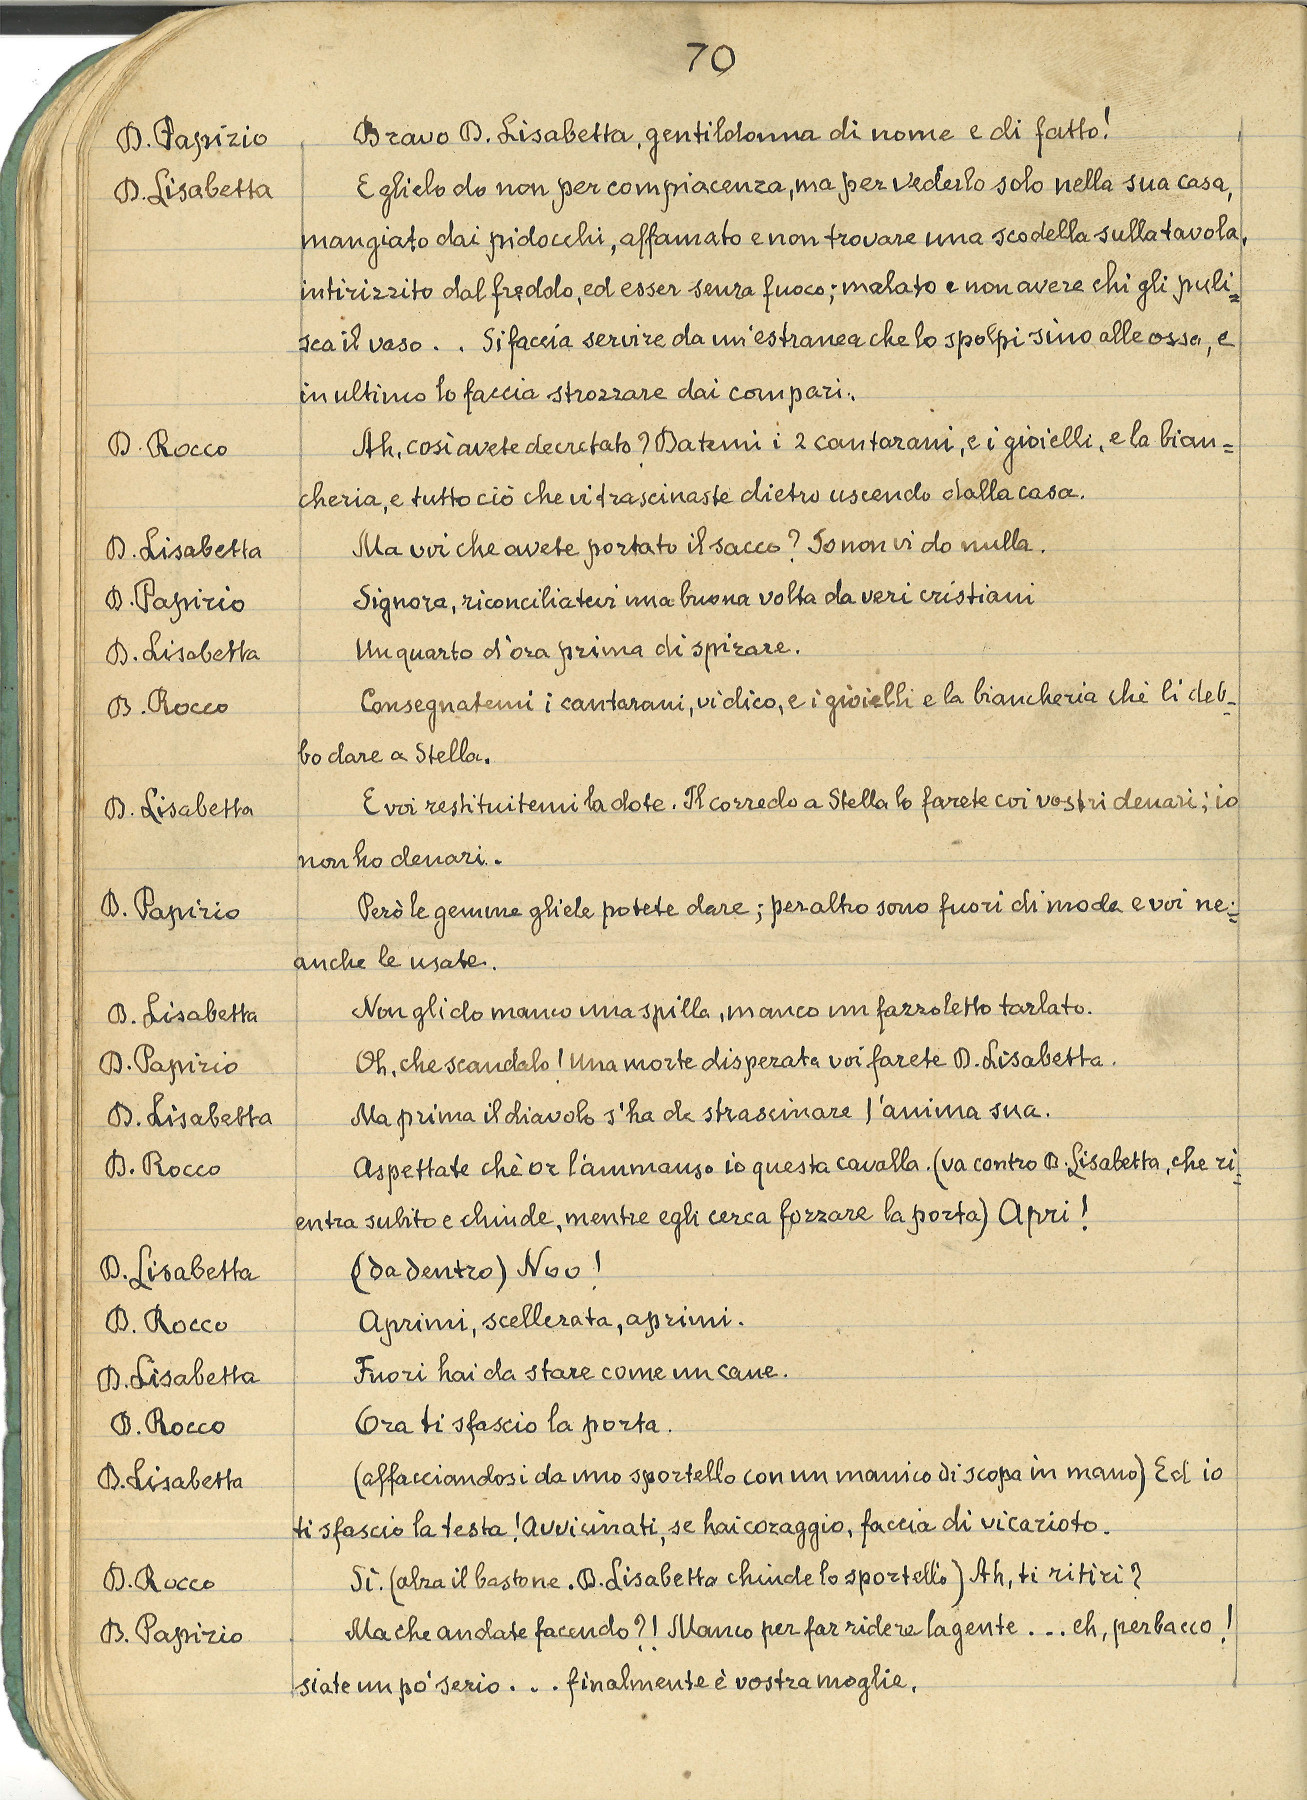 70
D. Papirio Bravo D. Lisabetta, gentildonna di nome e di fatto!
D. Lisabetta E glielo do non per compiacenza, ma per vederlo solo nella sua casa,
mangiato dai pidocchi, affamato e non trovare una scodella sulla tavola,
intirizzito dal freddo, ed esser senza fuoco; malato e non avere chi gli puli=
sca il vaso . . Si faccia servire da un'estranea che lo spolpi sino alle ossa, e
in ultimo lo faccia strozzare dai compari..
D. Rocco Ah, così avete decretato? Datemi i 2 cantarani, e i gioielli, e la bian=
cheria, e tutto ciò che vi trascinaste dietro uscendo dalla casa.
D. Lisabetta Ma voi che avete portato il sacco? Io non vi do nulla.
D. Papirio Signora, riconciliatevi una buona volta da veri cristiani
D. Lisabetta Un quarto d'ora prima di spirare.
D. Rocco Consegnatemi i cantarani, vi dico, e i gioielli e la biancheria chè li deb-
bo dare a Stella.
D. Lisabetta E voi restituitemi la dote. Il corredo a Stella lo farete coi vostri denari; io
non ho denari..
D. Papirio Però le gemme gliele potete dare; peraltro sono fuori di moda e voi ne=
anche le usate.
D. Lisabetta Non gli do manco una spilla, manco un fazzoletto tarlato.
D. Papirio Oh, che scandalo! Una morte disperata voi farete D. Lisabetta.
D. Lisabetta Ma prima il diavolo s'ha da strascinare l'anima sua.
D. Rocco Aspettate chè or l'ammanzo io questa cavalla. (va contro D. Lisabetta, che ri=
entra subito e chiude, mentre egli cerca forzare la porta) Apri!
D. Lisabetta (da dentro) Noo!
D. Rocco Aprimi, scellerata, aprimi.
D. Lisabetta Fuori hai da stare come un cane.
D. Rocco Ora ti sfascio la porta.
D. Lisabetta (affacciandosi da uno sportello con un manico di scopa in mano) Ed io
ti sfascio la testa! Avvicinati, se hai coraggio, faccia di vicarioto.
D. Rocco Sì. (alza il bastone. D. Lisabetta chiude lo sportello) Ah, ti ritiri?
D. Papirio Ma che andate facendo?! Manco per far ridere la gente ... eh, perbacco!
siate un pò serio . . . finalmente è vostra moglie.